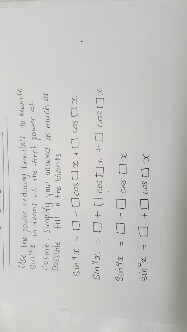 Use the power reducing formulas to rewrite
sin⁴x in terms of the first power of
cosine. Simplify your answer as much as
possible fill in the blanks
sin⁴x = □ - □ cos □ x + □ cos □ x
sin⁴x = □ + □ cos □ x + □ cos □ x
sin⁴x = □ - □ cos □ x
sin⁴x = □ + □ cos □ x